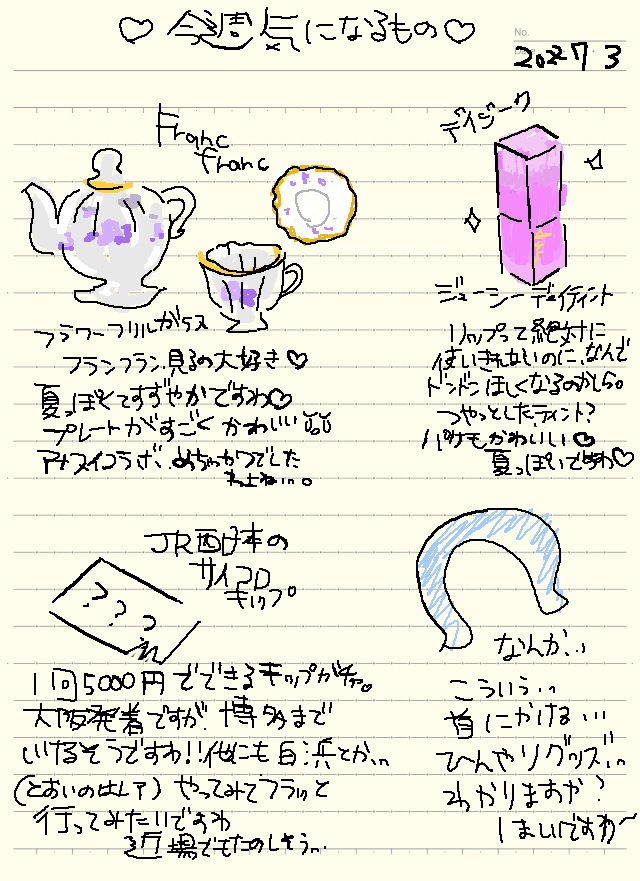 ♡ 今週気になるもの ♡
No.
2022 7 3
Franc
franc
フラワーフリルガラス
フランフラン見るの大好き♡
夏っぽくてすずやかですわ♡
プレートがすごくかわいい
アナスイコラボ、めちゃかわでした
わよね…。
デイジーク
ジューシーデイティント
リップって絶対に
使いきれないのに、なんで
ドンドンほしくなるのかしら。
つやっとしたティント?
パケもかわいい♡
夏っぽいですわ♡
JR西日本の
サイコロ
キップ
? ? ?
1回5000円でできるキップガチャ。
大阪発着ですが、博多まで
いけるそうですわ!!他にも白浜とか…
(とおいのはレア) やってみてフラッと
行ってみたいですわ
近場でもたのしそう…
なんか…
こういう…
首にかける…
ひんやりグッズ…
わかりますか?
ほしいですわ〜